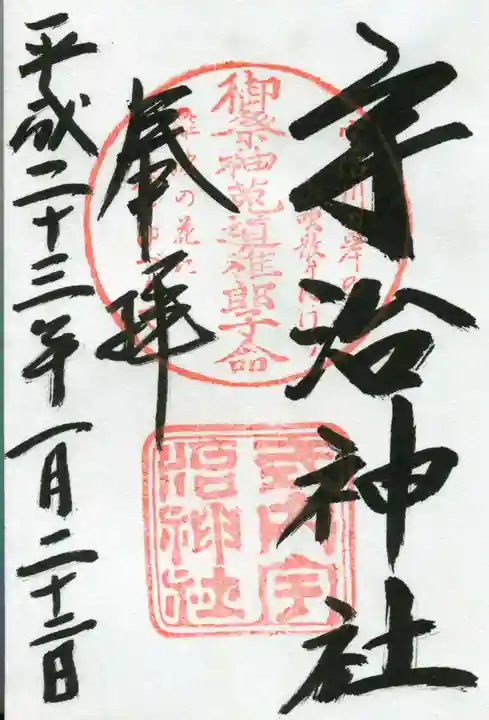 宇治神社
奉拝
平成二十三年一月二十二日
御祭神菟道稚郎子命
式内宇
治神社